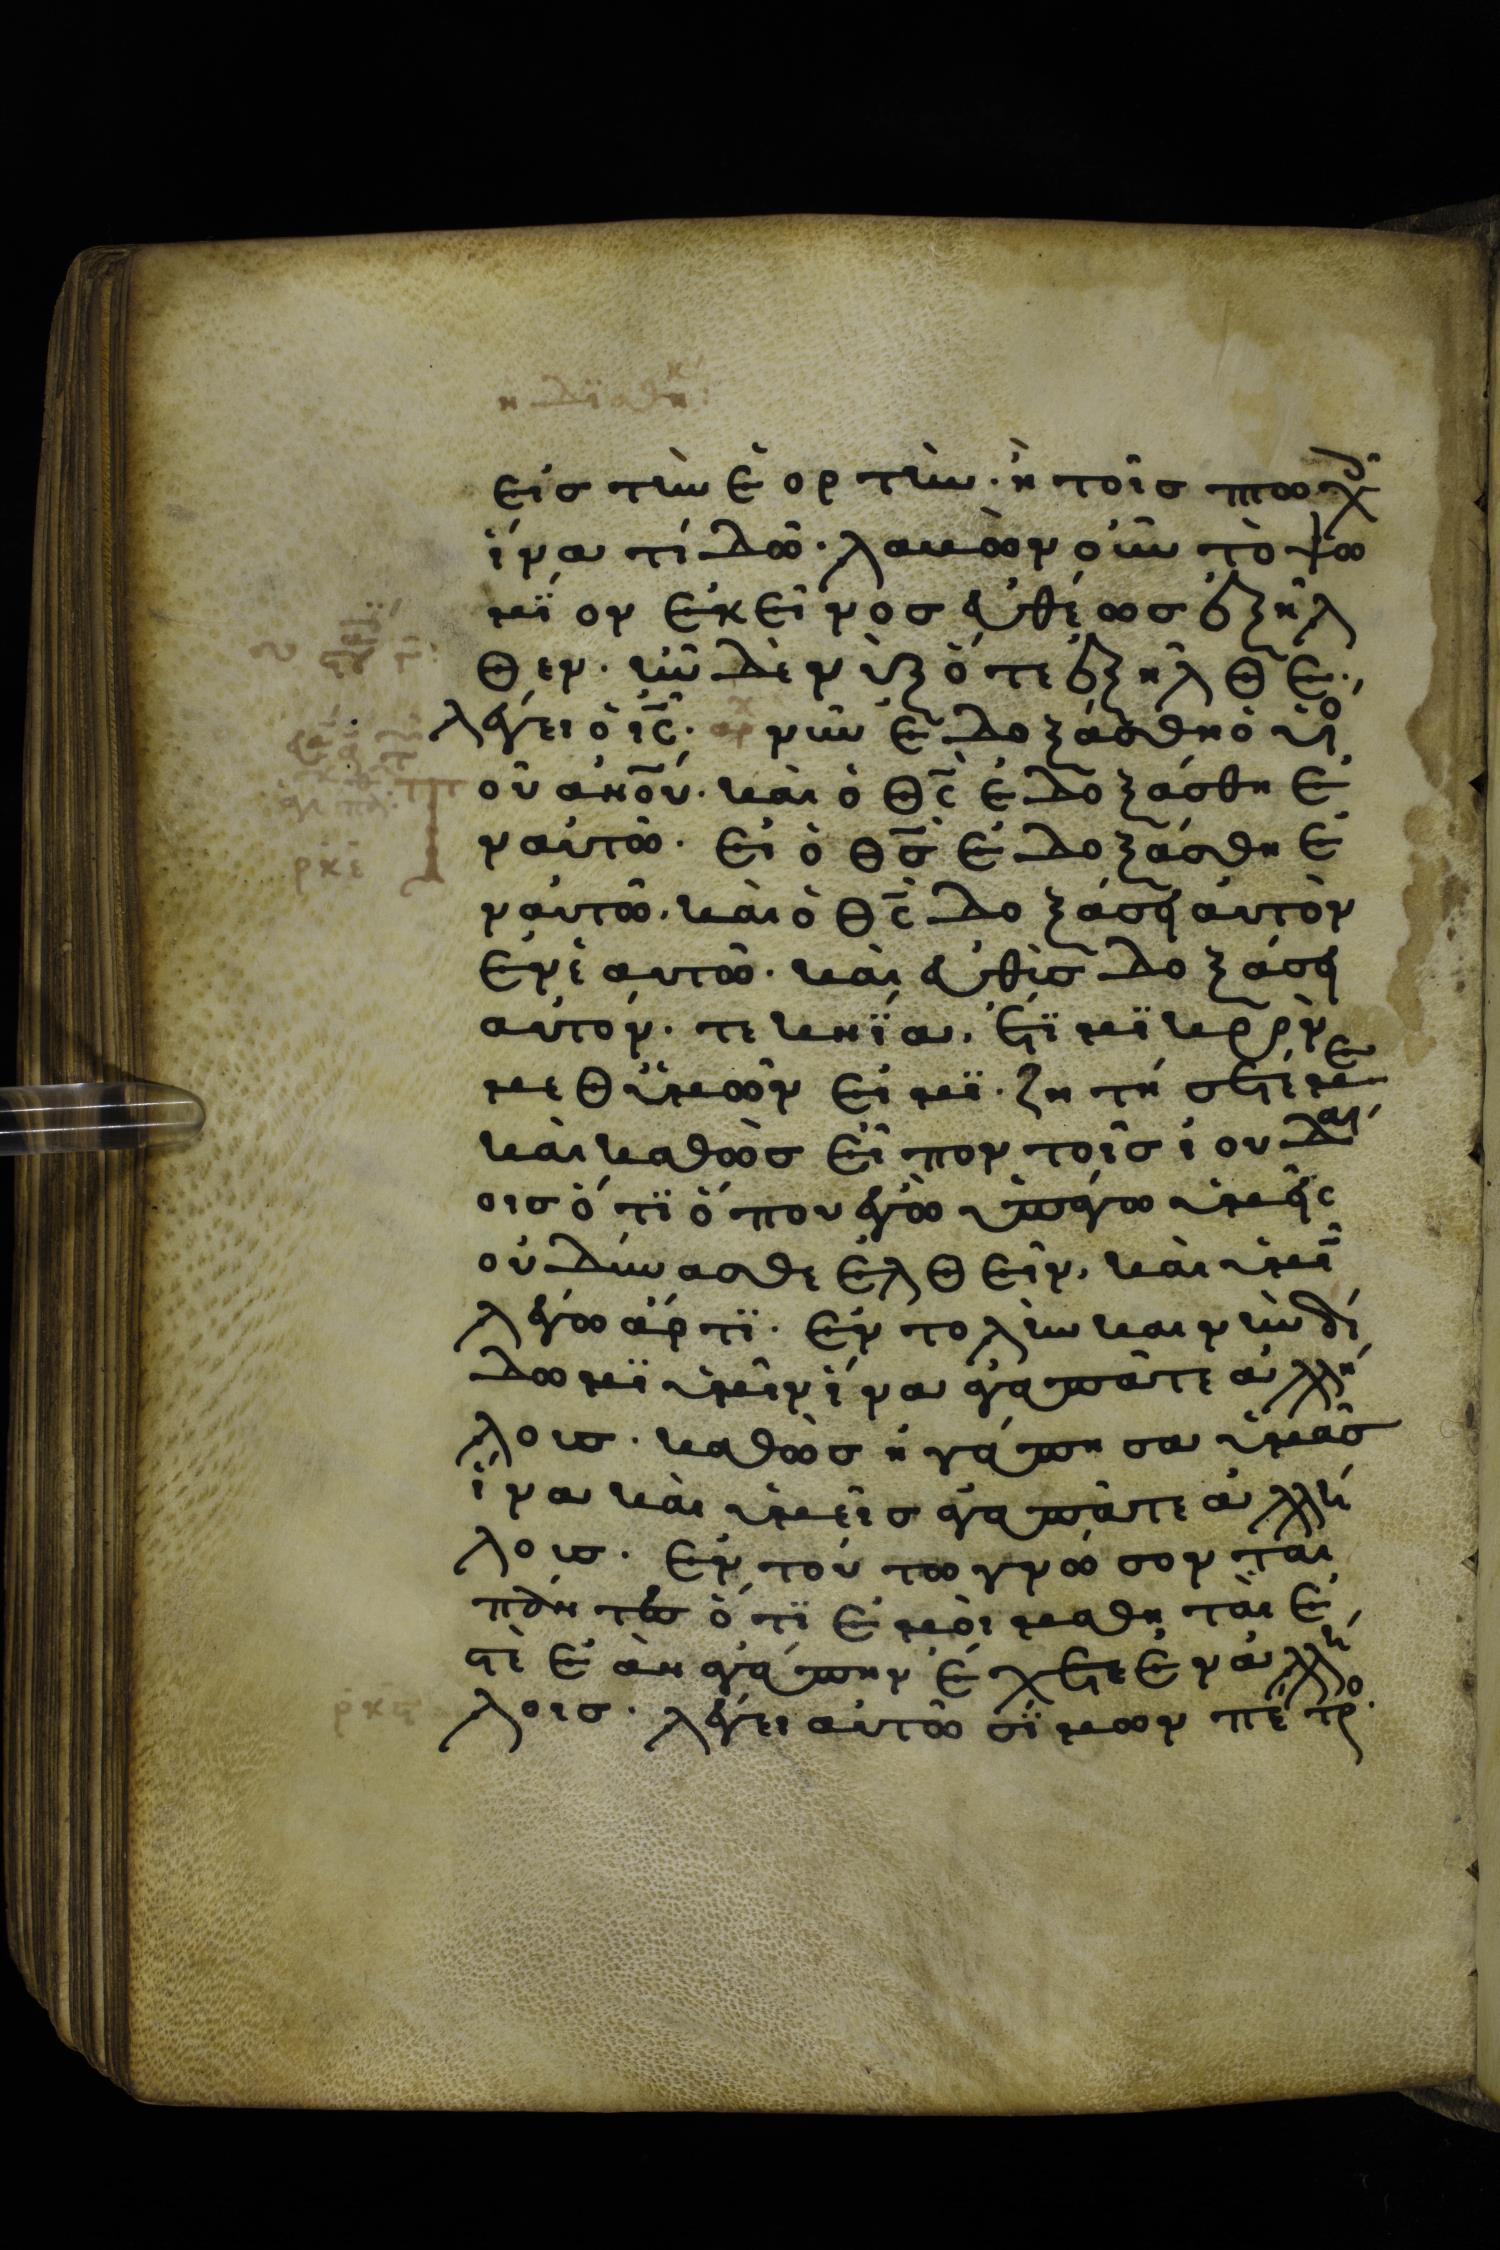 η διαθηκ:
εἰσ τὴν ἑορτὴν· ἢ τοῖσ πτωχοῖ
ἵνα τί δῶ· λαβὼν οὖν τὸ ψω
μΐον ἐκεῖνοσ εὐθέωσ ἐξῆλ
θεν· ἦν δὲ νὺξ ὅτε ἐξῆλθε·,
λέγει ὁ ισ· αρχ νῦν ἐδοξάσθη ὁ υἱὸ
τοῦ ανου· καὶ ὁ θσ ἐδοξάσθη ἐ
ν αὐτῶ· εἰ ὁ θσ ἐδοξάσθη ἐ
ν αὐτῶ, καὶ ὁ θσ δοξάσει αὐτὸν
ἐν ἑαυτῶ· καὶ εὐθὺσ δοξάσει
αὐτόν· τεκνΐα, ἔτϊ μϊκρὸν
μεθ ὑμῶν εἰμϊ· ζητήσετέ με
καὶ καθὼσ εἶπον τοῖσ ἰουδαί
οισ ὅτϊ ὅπου ἐγὼ ὑπάγω ὑμεῖσ
οὐ δύνασθε ἐλθεῖν, καὶ ὑμῖ
λέγω ἄρτϊ· ἐντολὴν καινὴν δί
δωμϊ ὑμῖν ἵνα ἀγαπᾶτε ἀλλή
λουσ· καθὼσ ἠγάπησα ὑμᾶσ
ἵνα καὶ ὑμεῖσ ἀγαπᾶτε ἀλλή
λουσ· ἐν τούτω γνώσονται
πάντεσ ὅτϊ ἐμοὶ μαθηταὶ ἐ
στὲ ἐὰν ἀγάπην ἔχετε ἐν ἀλλή
λοισ· λέγει αὐτῶ σΐμων πέτρο·
ρκε
ρκϛ